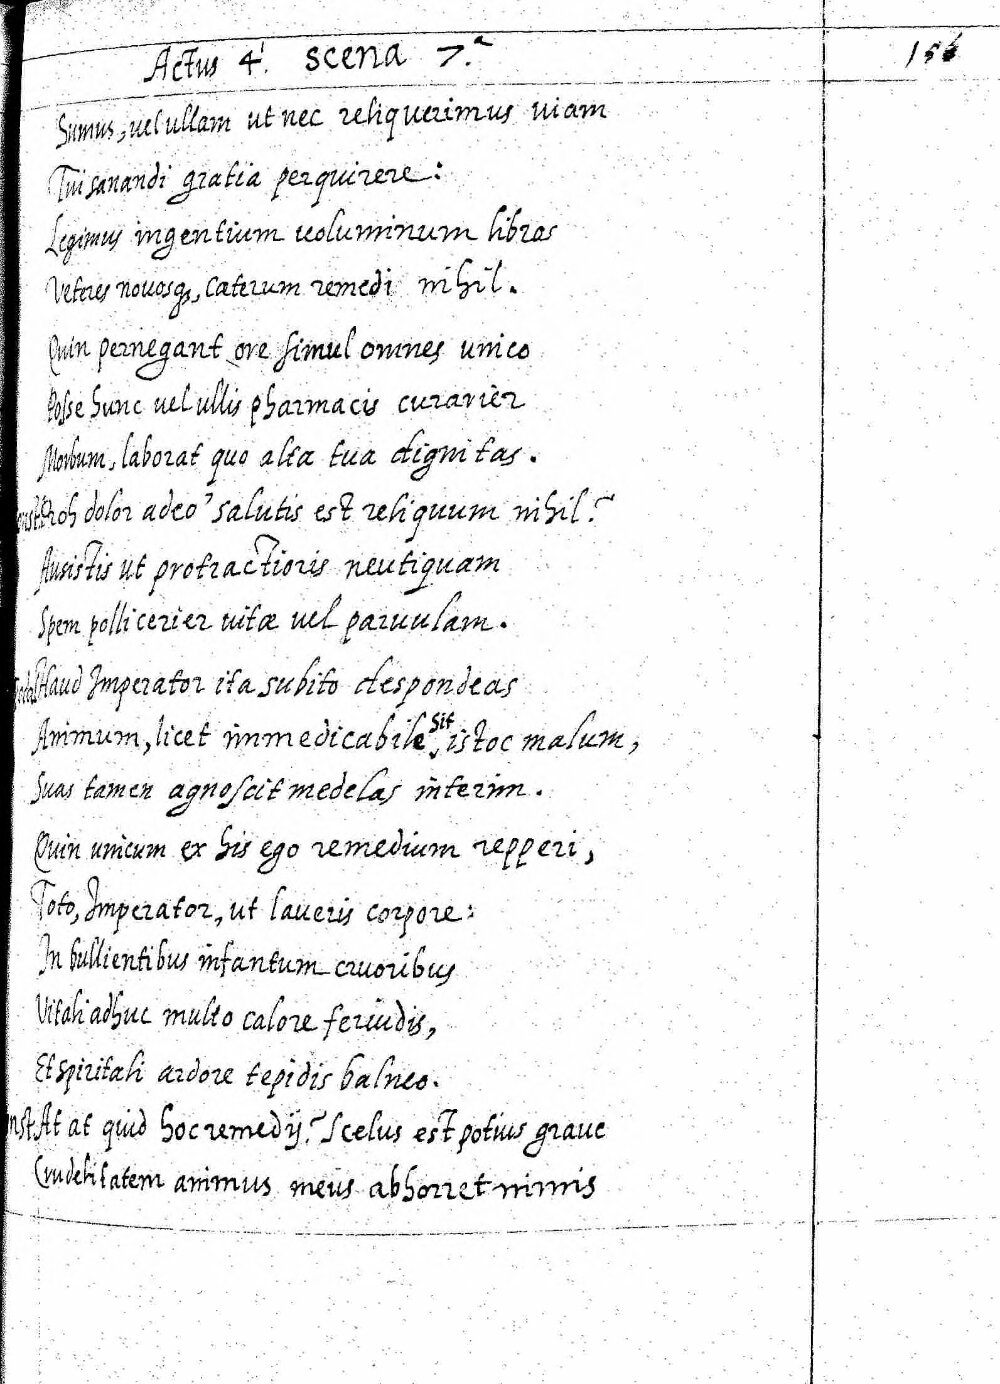 Actus 4.^i scena 7.^a
156
Sumus, uel ullam ut nec reliquerimus uiam
Tui sanandi gratia perquirere:
Legimus ingentium uoluminum libros
Veteres nouosq₃, caeterum remedi nihil.
Quin pernegant ore simul omnes unico
Posse hunc uel ullis pharmacis curarier
Morbum, laborat quo alta tua dignitas.
Proh dolor adeo' salutis est reliquum nihil?
Ausistis ut protractioris neutiquam
Spem pollicerier uitæ uel paruulam.
Haud Imperator ita subito despondeas
Animum, licet immedicabile sit istoc malum,
Suas tamen agnoscit medelas interim.
Quin unicum ex his ego remedium repperi,
Toto, Imperator, ut laueris corpore:
In bullientibus infantum cruoribus
Vitali adhuc multo calore feruidis,
Et spiritali ardore tepidis balneo.
nst. At at quid hoc remedij? Scelus est potius graue
Crudelitatem animus meus abhorret nimis